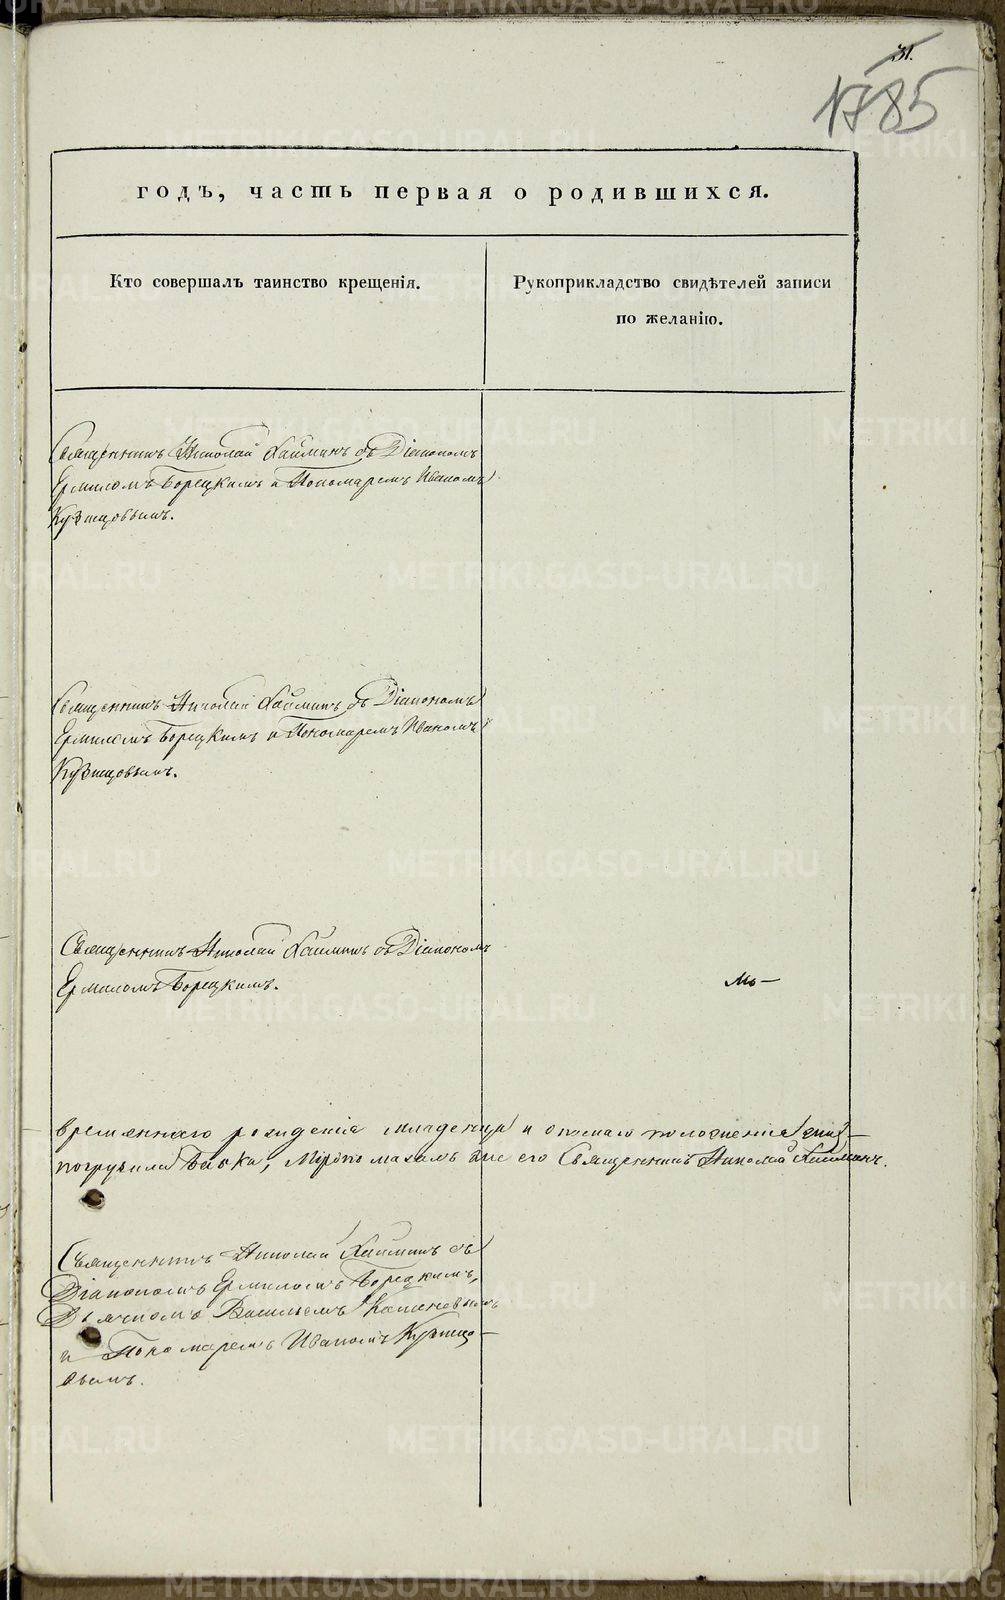 31.
1785
годъ, часть первая о родившихся.
Кто совершалъ таинство крещенія.
Рукоприкладство свидѣтелей записи
по желанію.
Священникъ Николай съ Діакономъ
Ермиломъ Борецкимъ и Пономаремъ Иваномъ
Кузнцовымъ.
Священникъ Николай съ Діакономъ
Ермиломъ Борецкимъ и Пономаремъ Иваномъ
Кузнцовымъ.
Священникъ Николай съ Діакономъ
Ермиломъ Борецкимъ.
временнаго рожденія младенца и опаснаго положенія
погружила бабка, Мѵропомазалъ же его Священникъ Николай
Священникъ Николай съ
Діакономъ Ермиломъ Борецкимъ,
Дьячкомъ Васильемъ
и Пономаремъ Иваномъ Кузнцо-
вымъ.
METRIKI.GASO-URAL.RU